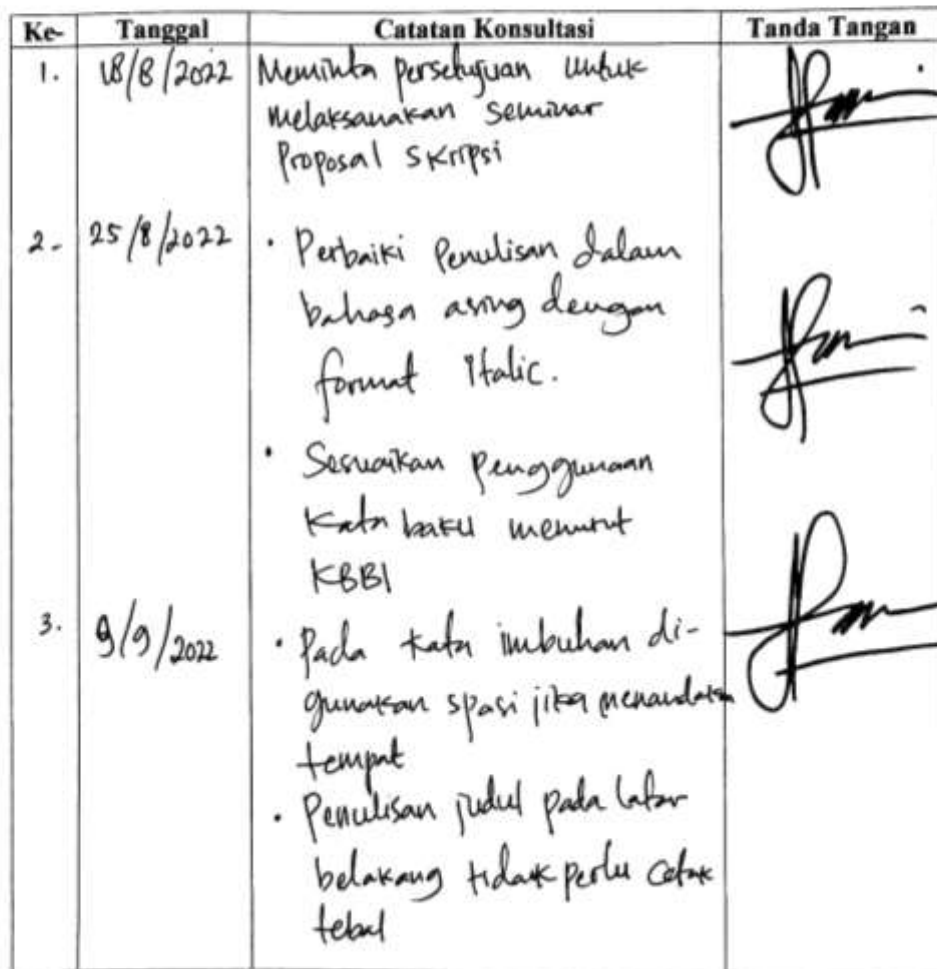 Ke- Tanggal Catatan Konsultasi Tanda Tangan
1. 18/8/2022 Meminta persetujuan untuk
melaksanakan Seminar
Proposal Skripsi
2- 25/8/2022 • Perbaiki Penulisan dalam
bahasa asing dengan
format Italic.
• Sesuaikan penggunaan
Kata baku menurut
KBBI
3. 9/9/2022 • Pada kata imbuhan di-
gunakan spasi jika menandakan
tempat
• Penulisan judul pada latar
belakang tidak perlu cetak
tebal